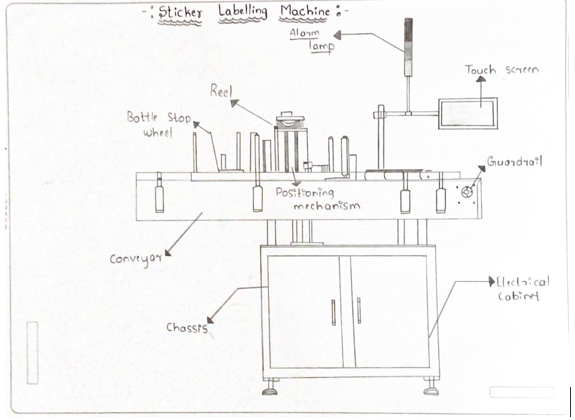 -: Sticker Labelling Machine :-
Alarm
lamp
Touch screen
Reel
Bottle Stop
wheel
Guardrail
Positioning
mechanism
Conveyar
Electrical
Cabinet
Chassis